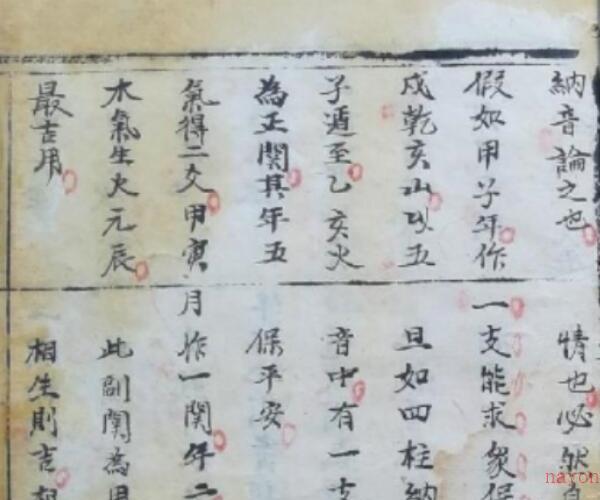 納音論之也
假如甲子年作
戍乾亥山以五
子遁至乙亥火
為正関其年五
氣得二交甲寅月
木氣生火元辰
最吉用
情也必然
一支能求衆保
且如四柱納
音中有一支
保平安
作一関年二
此副関為用
相生則吉